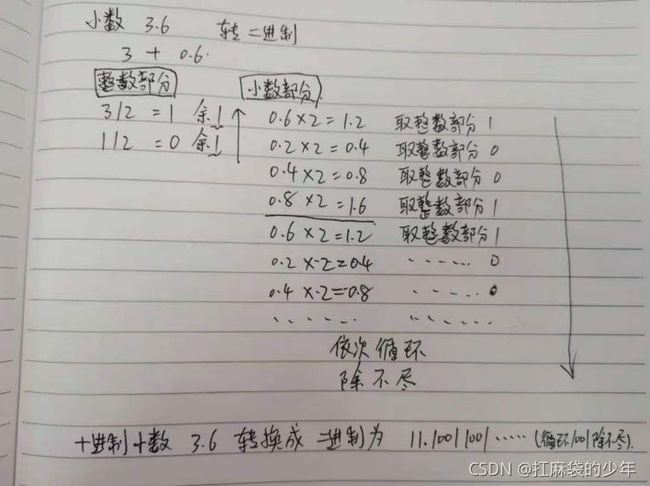 小数 3.6 转二进制
3 + 0.6.
整数部分 小数部分
3/2 = 1 余1 0.6×2=1.2 取整数部分 1
1/2 = 0 余1 0.2×2=0.4 取整数部分 0
0.4×2=0.8 取整数部分 0
0.8×2=1.6 取整数部分 1
0.6×2=1.2 取整数部分 1
0.2×2=0.4 ...... 0
0.4×2=0.8 ...... 0
...... ......
依次循环
除不尽
十进制小数 3.6 转换成 二进制为 11.1001 1001 ..... (循环1001除不尽).
CSDN @扛麻袋的少年